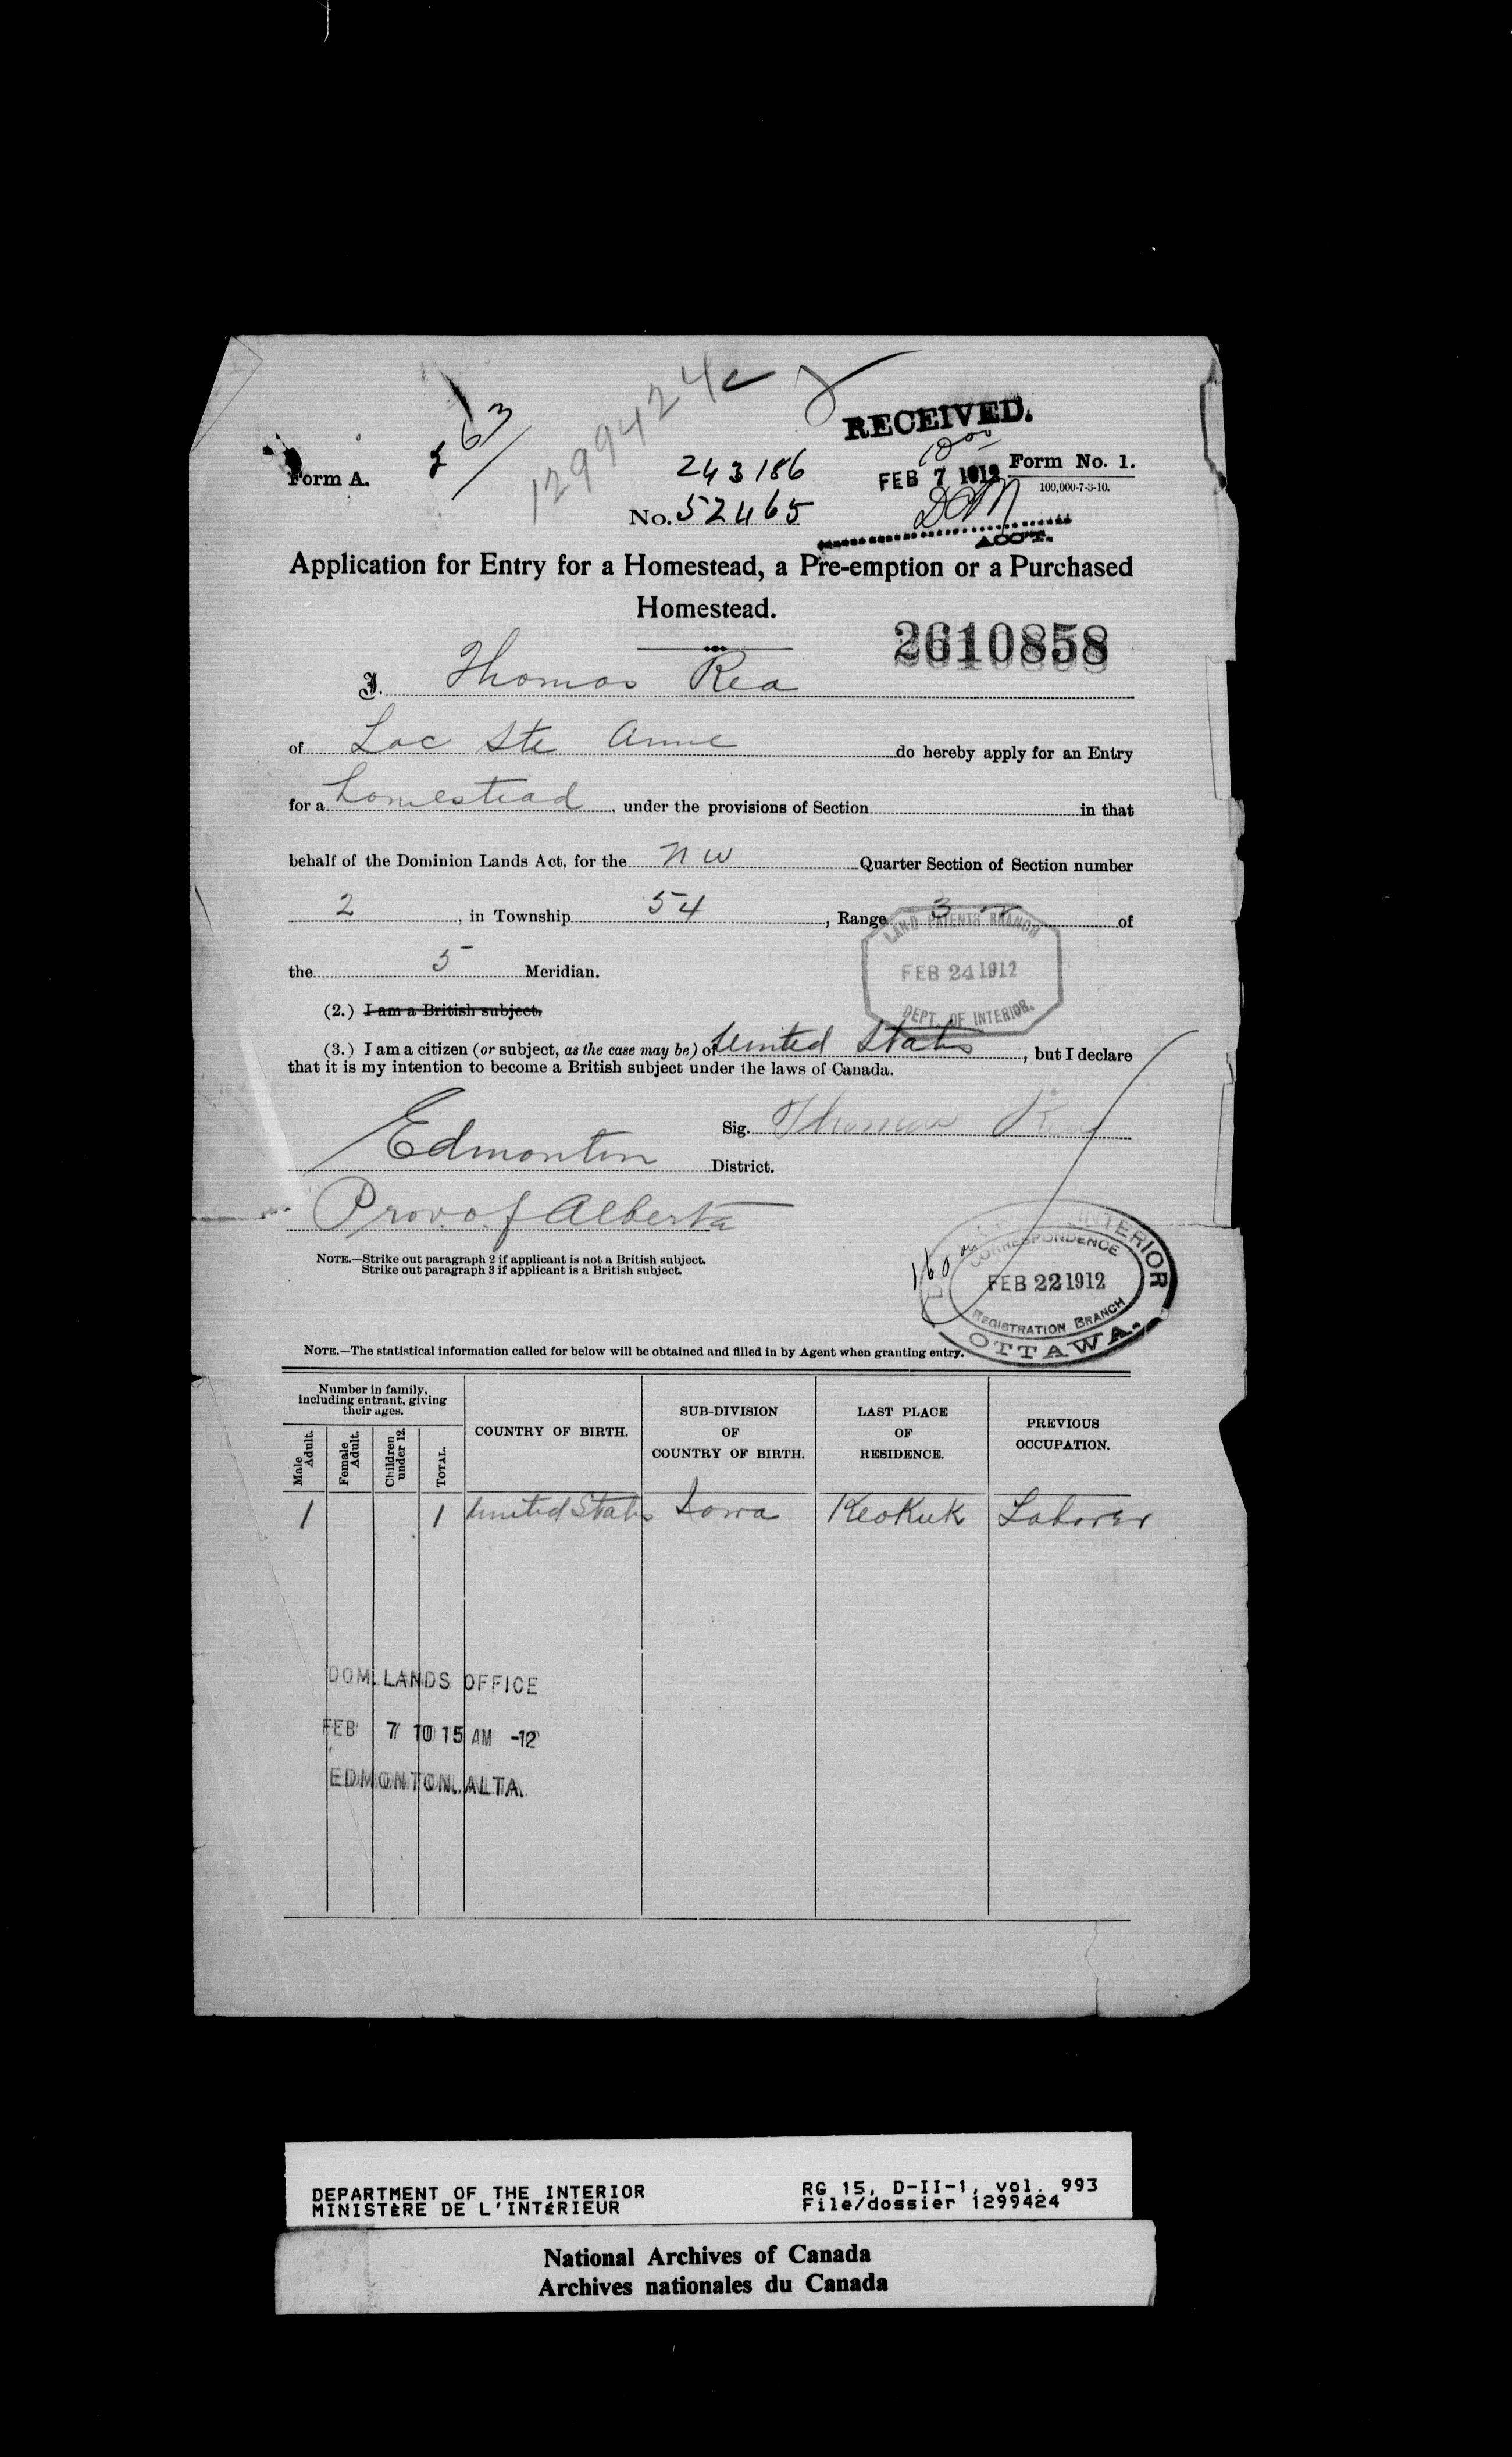 1299424
63
RECEIVED.
Form A.
243186
FEB 7 1912
Form No. 1.
100,000-7-3-10.
No. 52465
ACC'T.
Application for Entry for a Homestead, a Pre-emption or a Purchased
Homestead.
2610858
I. Thomas Rea
of Lac Ste Anne do hereby apply for an Entry
for a homestead, under the provisions of Section in that
behalf of the Dominion Lands Act, for the NW Quarter Section of Section number
2, in Township 54, Range 3 of
LAND PATENTS BRANCH
FEB 24 1912
DEPT. OF INTERIOR.
the 5 Meridian.
(2.) I am a British subject.
(3.) I am a citizen (or subject, as the case may be) of United States, but I declare
that it is my intention to become a British subject under the laws of Canada.
Sig. Thomas Rea
Edmonton District.
Prov. of Alberta
NOTE.—Strike out paragraph 2 if applicant is not a British subject.
Strike out paragraph 3 if applicant is a British subject.
INTERIOR
CORRESPONDENCE
FEB 22 1912
REGISTRATION BRANCH
OTTAWA.
160
NOTE.—The statistical information called for below will be obtained and filled in by Agent when granting entry.
Number in family, including entrant, giving their ages.
Male Adult.
Female Adult.
Children under 12.
TOTAL.
COUNTRY OF BIRTH.
SUB-DIVISION OF COUNTRY OF BIRTH.
LAST PLACE OF RESIDENCE.
PREVIOUS OCCUPATION.
1 1 United States Iowa KeoKuk Laborer
DOM. LANDS OFFICE
FEB 7 10 15 AM -12
EDMONTON. ALTA.
DEPARTMENT OF THE INTERIOR
MINISTÈRE DE L'INTÉRIEUR
RG 15, D-II-1, vol. 993
File/dossier 1299424
National Archives of Canada
Archives nationales du Canada